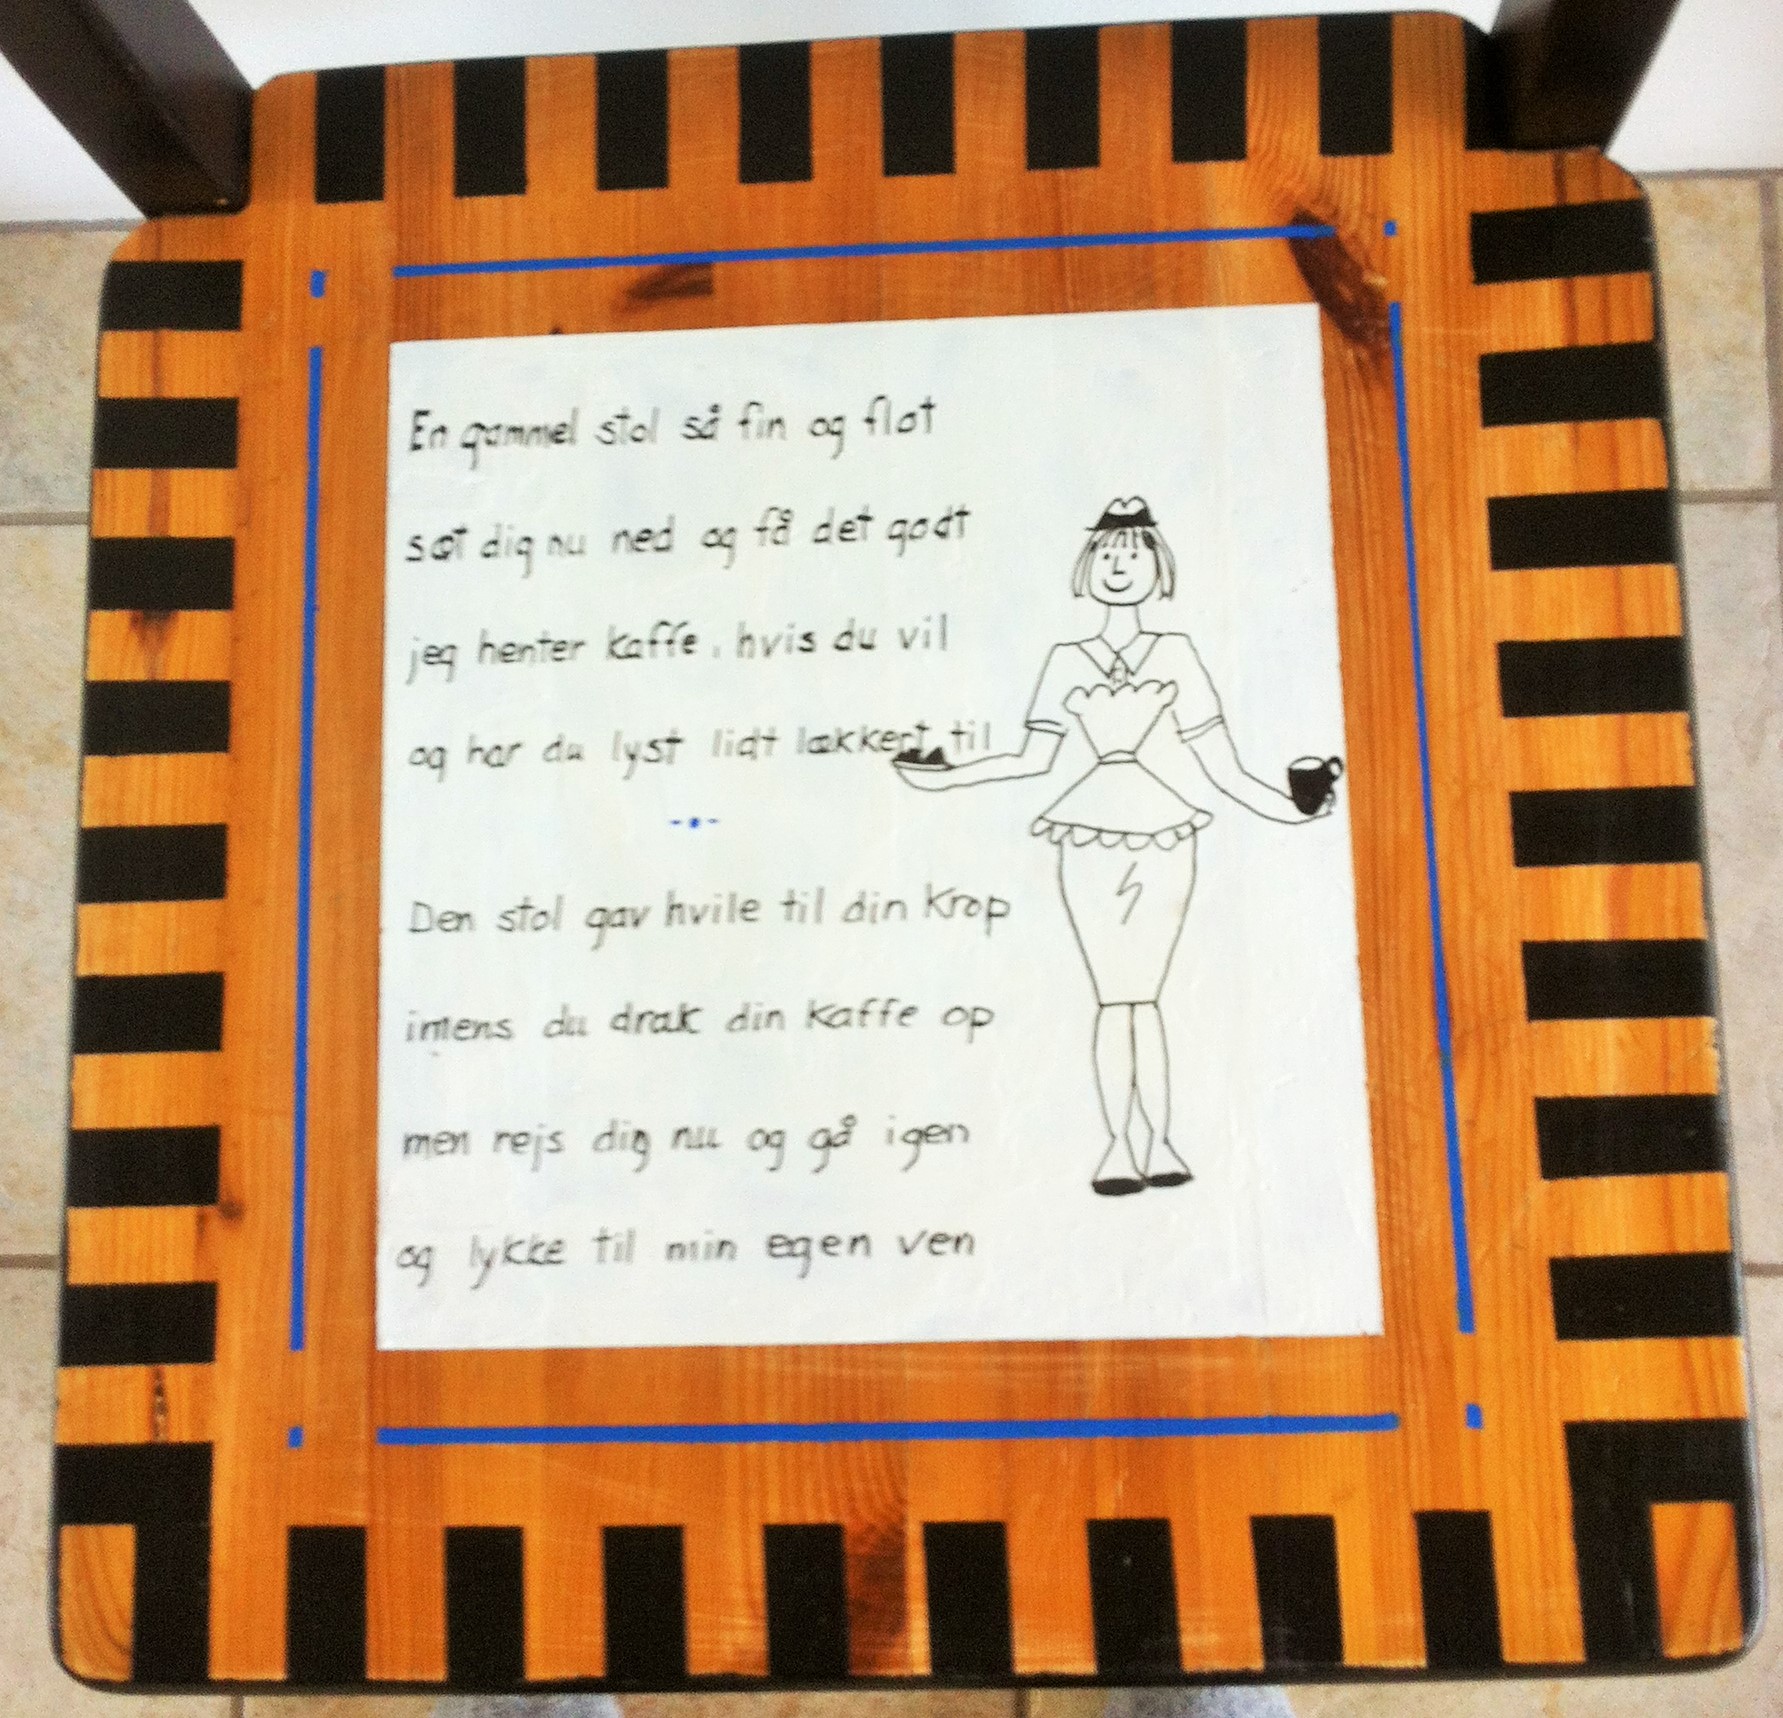 En gammel stol så fin og flot
sæt dig nu ned og få det godt
jeg henter kaffe, hvis du vil
og har du lyst lidt lækkert til
Den stol gav hvile til din krop
imens du drak din kaffe op
men rejs dig nu og gå igen
og lykke til min egen ven